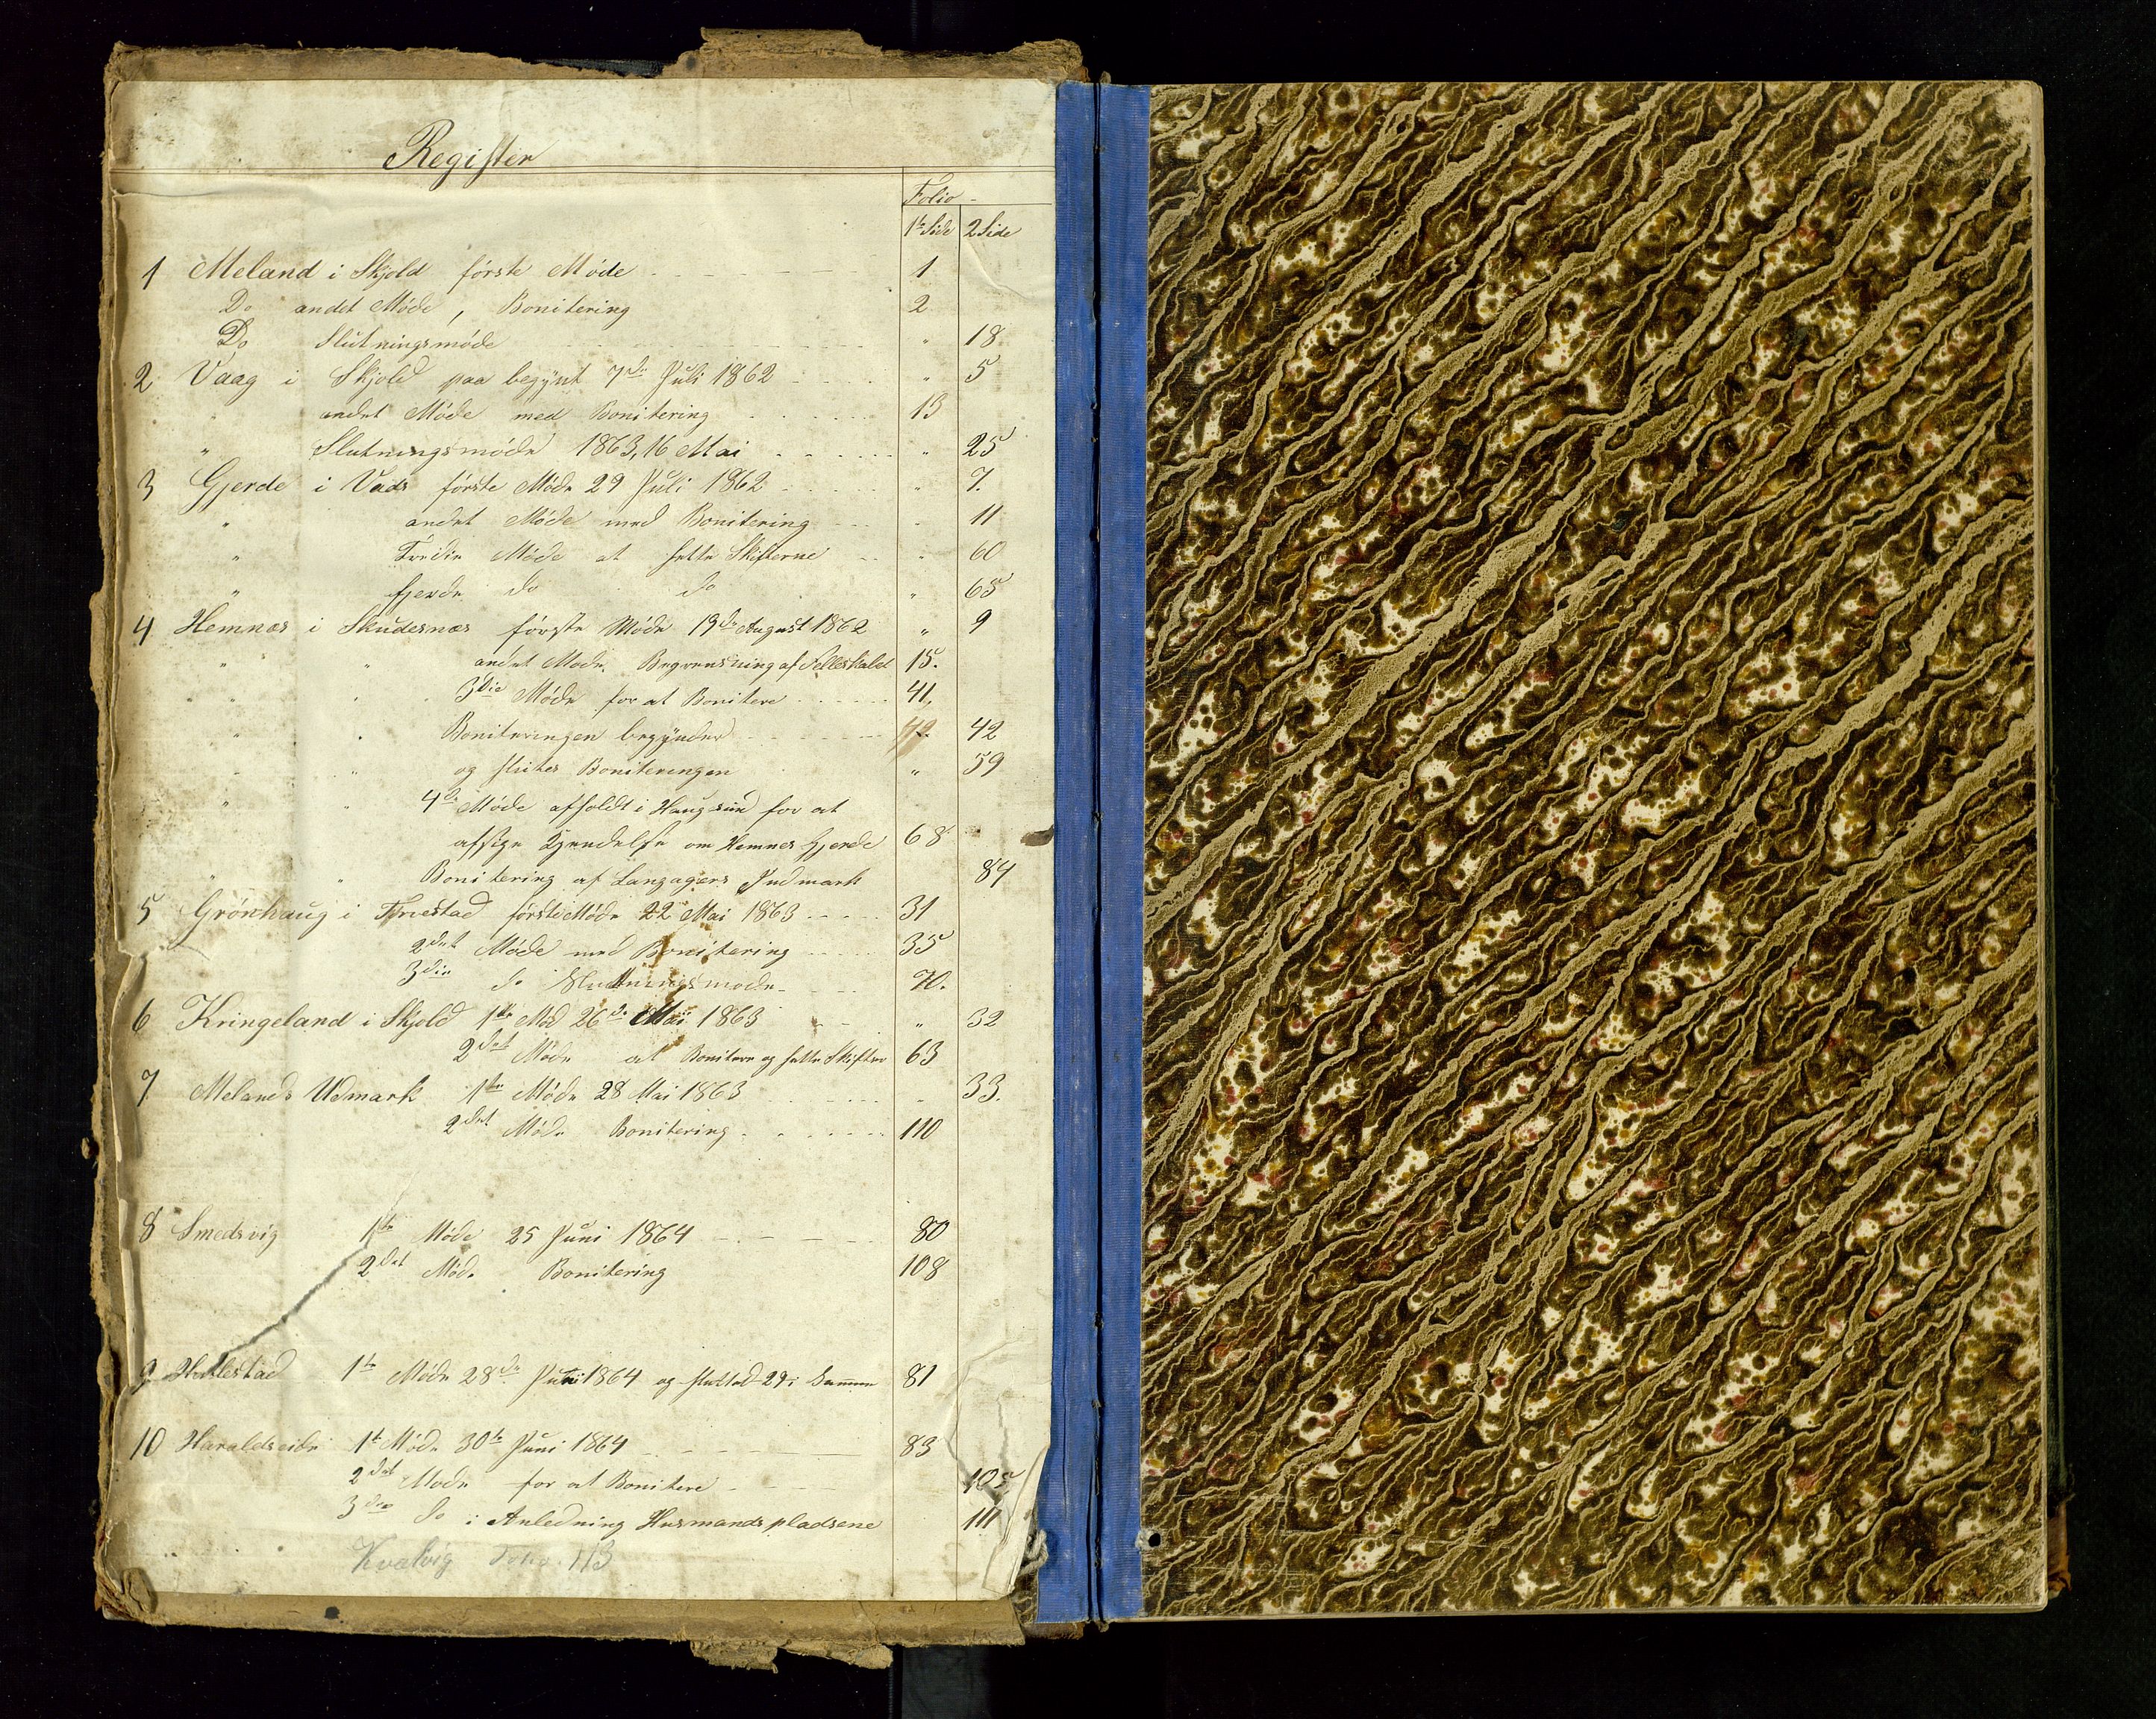 Register
Folio
1ste Side 2 Side
1 Meland i Skjold første Møde 1
Do andet Møde, Bonitering 2
Do Slutningsmøde " 18
2 Vaag i Skjold paa begynt 7de Juli 1862 " 5
andet Møde med Bonitering 13
" Slutningsmøde 1863, 16 Mai " 25
3 Gjerde i Vads første Møde 29 Juli 1862 " 7.
" andet Møde med Bonitering " 11
" Tredie Møde at sette Skifterne " 60
" fjerde do do " 65
4 Hemnæs i Skudesnæs første Møde 19de August 1862 " 9
" " andet Møde, Begrensning af Felleskabet 15.
" " 3die Møde for at Bonitere 41,
" " Boniteringen begynder 42
" " og sluttes Boniteringen " 59
" " 4de Møde afholdt i Haugsund for at
afsige Kjendelse om Hemnes Gjerde 68
" " Bonitering af Langagers Indmark 84
5 Grønhaug i Torvestad første Møde 22 Mai 1863 31
2det Møde med Bonitering 35
3die do Slutningsmøde 70.
6 Kringeland i Skjold 1ste Mød 26de Mai 1863 " 32
2det Møde at Bonitere og sette Skifter 63
7 Melands Udmark 1ste Møde 28 Mai 1863 " 33.
2det Møde Bonitering 110
8 Smedsvig 1ste Møde 25 Juni 1864 80
2det Møde Bonitering 108
9 1ste Møde 28de Juni 1864 og sluttad 29 i Samme 81
10 Haraldseide 1ste Møde 30te Juni 1864 83
2det Møde for at Bonitere 105
3die do i Anledning Husmandspladsene 111
Kvalvig Folio 113